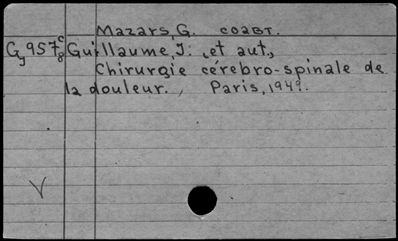 Mazars, G. соавт.
Gy957 c/8 Guillaume, J. et aut.,
Chirurgie cérebro-spinale de
la douleur., Paris, 1949.
V